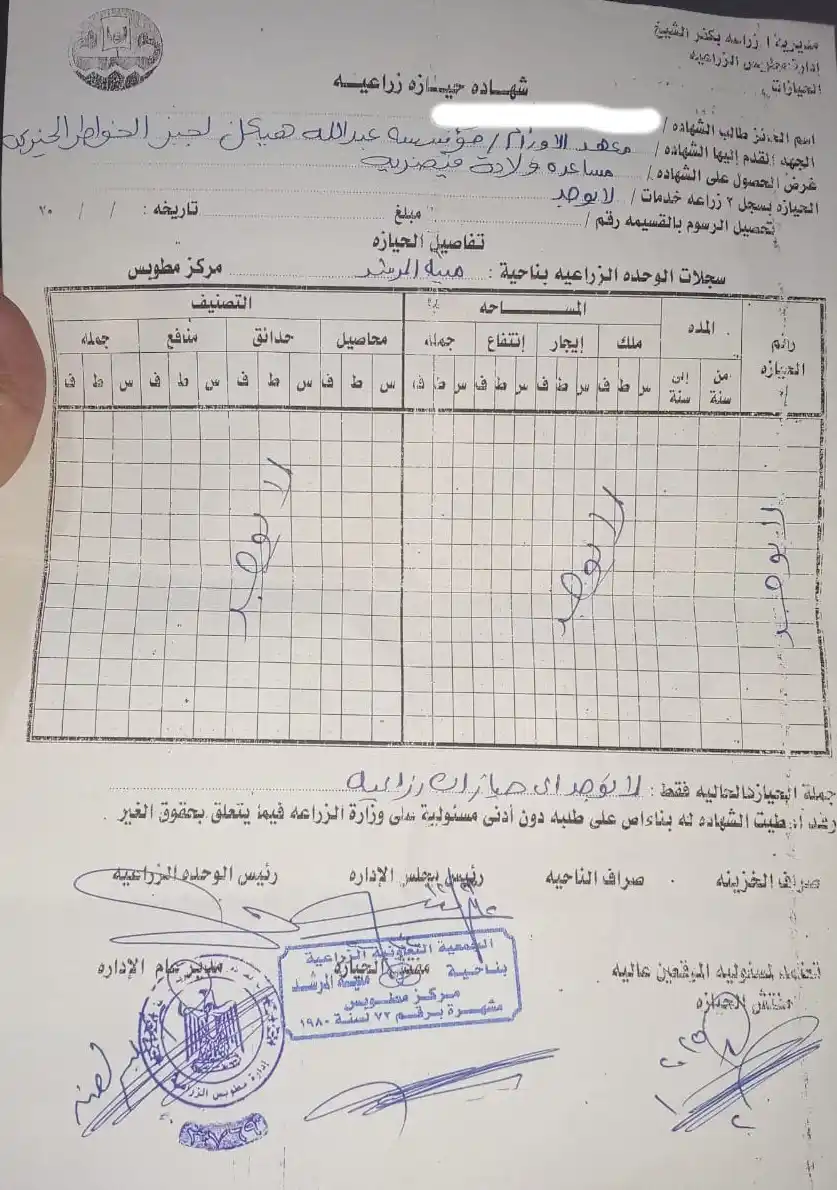 مديرية الزراعه بكفر الشيخ
إدارة مطوبس الزراعيه
الحيازات
شهاده حيازه زراعيه
اسم الحائز طالب الشهاده /
الجهه المقدم إليها الشهاده / معهد الاورام / مؤسسة عبدالله هيكل لجبر الخواطر الخيرية
غرض الحصول على الشهاده / مساعده ولادة قيصريه
الحيازه بسجل ٢ زراعه خدمات / لا يوجد
تحصيل الرسوم بالقسيمه رقم / مبلغ تاريخه : / / ٢٠
تفاصيل الحيازه
سجلات الوحده الزراعيه بناحية : منية المرشد مركز مطوبس
رقم الحيازه المده المساحه التصنيف
ملك إيجار إنتفاع جمله محاصيل حدائق منافع جمله
من سنة إلى سنة س ط ف س ط ف س ط ف س ط ف س ط ف س ط ف س ط ف س ط ف
لا يوجد لا يوجد لا يوجد
جملة الحيازه الحاليه فقط : لا يوجد اى حيازات زراعيه
وقد أعطيت الشهاده له بناءاص على طلبه دون أدنى مسئولية على وزارة الزراعه فيما يتعلق بحقوق الغير .
صراف الخزينه صراف الناحيه رئيس مجلس الإداره رئيس الوحده الزراعيه
نعتمد مسئوليه الموقعين عاليه
مفتش الحيازه مدير الحيازه مدير عام الإداره
الجمعية التعاونية الزراعية
بناحية منية المرشد
مركز مطوبس
مشهرة برقم ٧٢ لسنة ١٩٨٠
إدارة مطوبس الزراعية